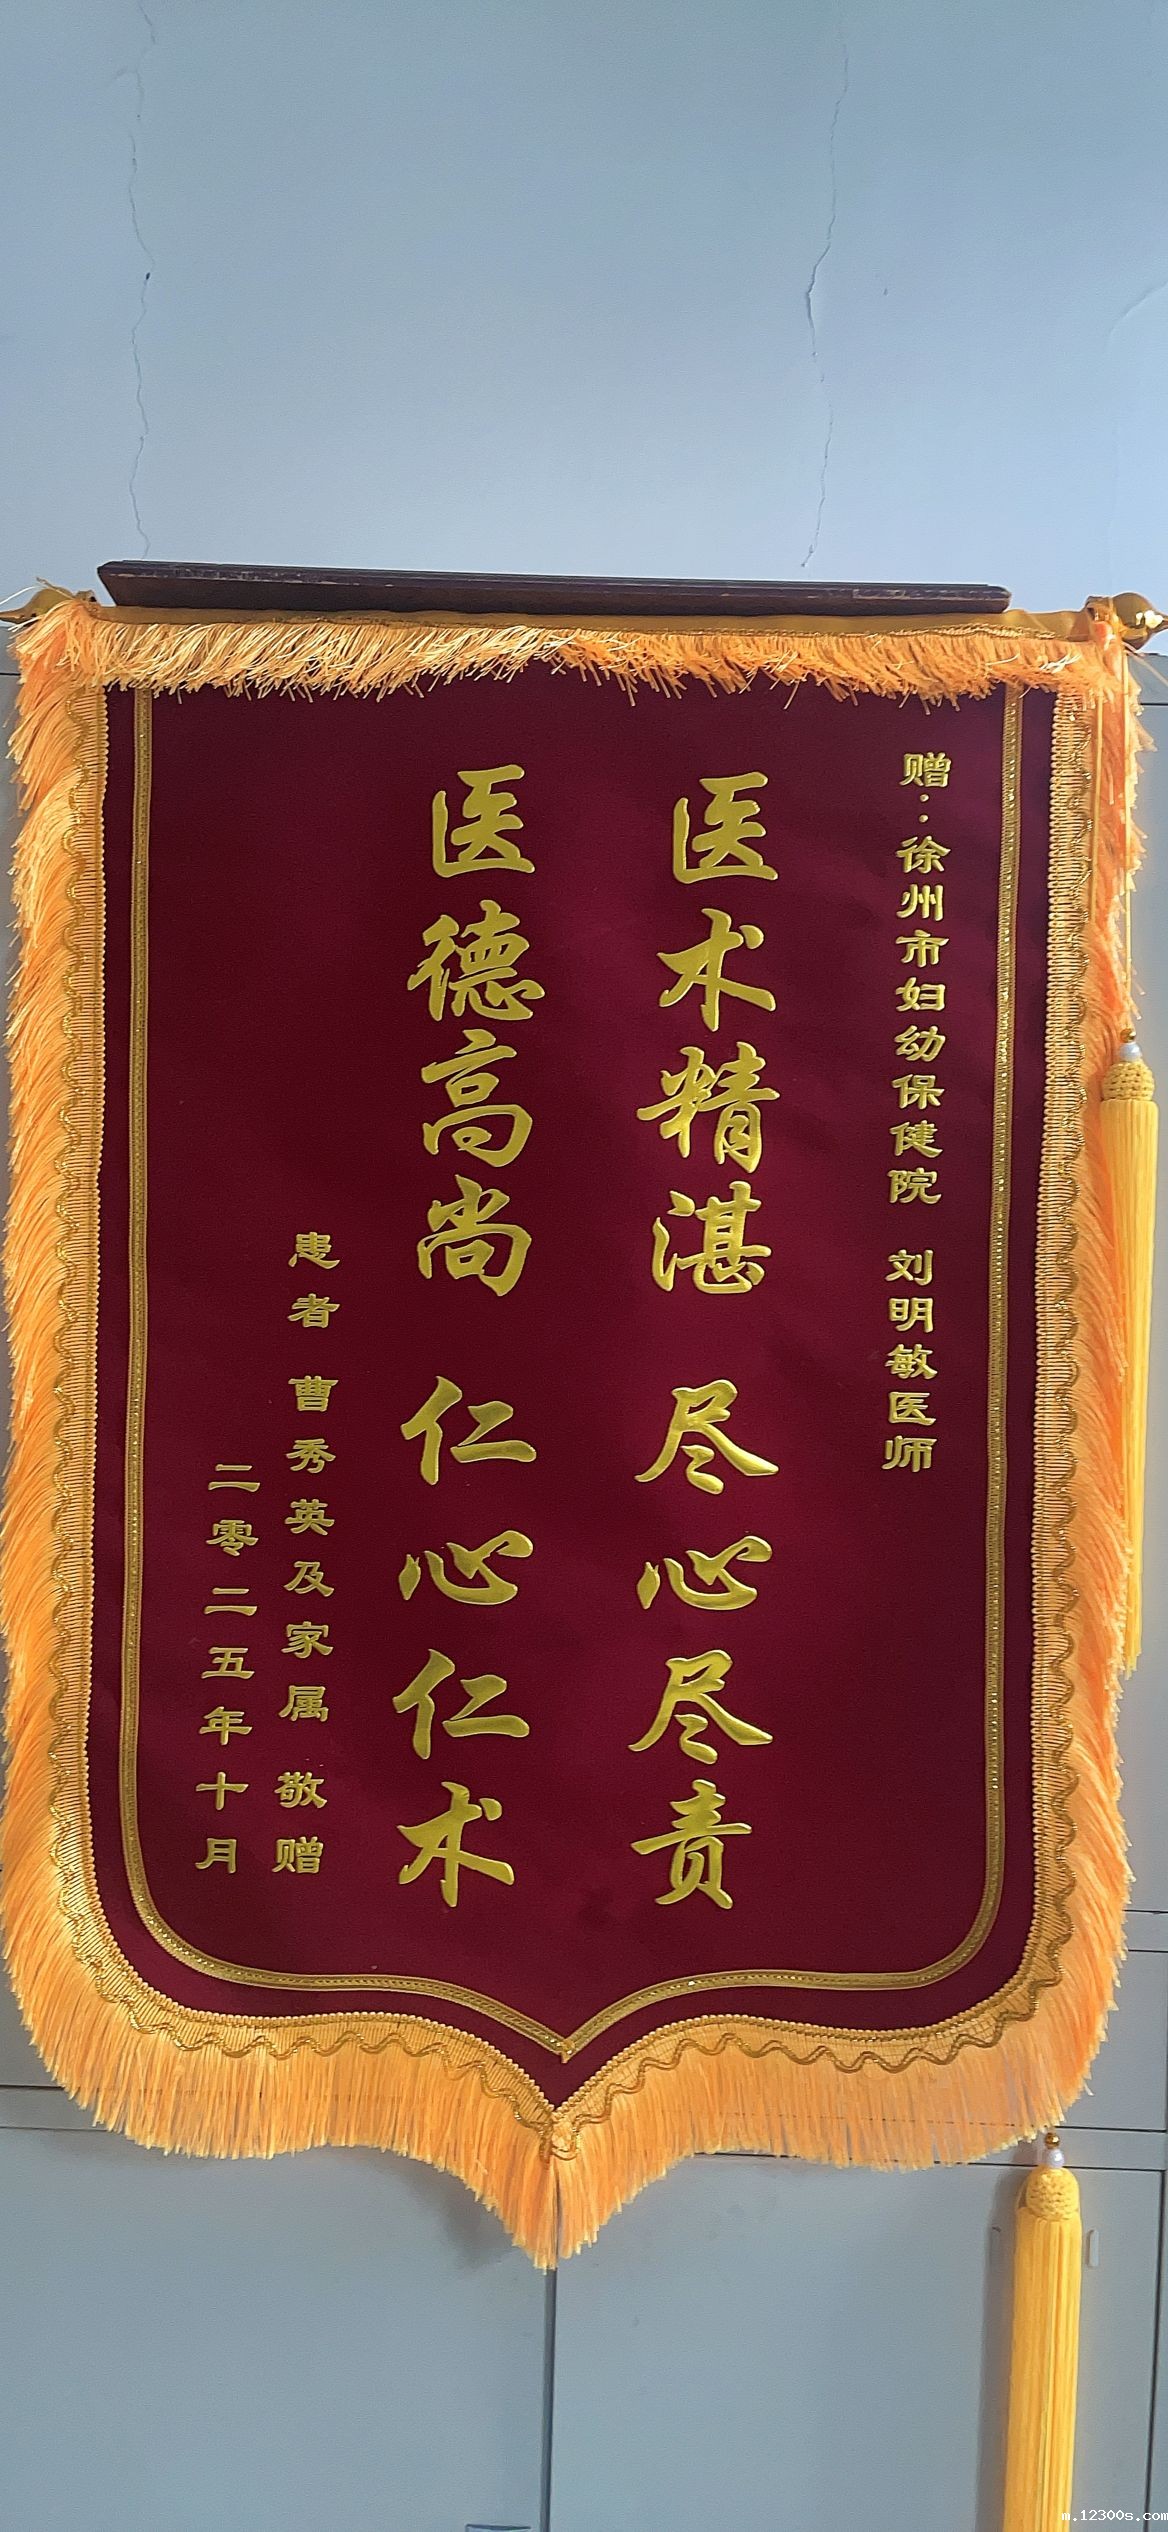 赠：徐州市妇幼保健院 刘明敏医师
医术精湛 尽心尽责
医德高尚 仁心仁术
患者 曹秀英及家属 敬赠
二零二五年十月
m.12300s.com